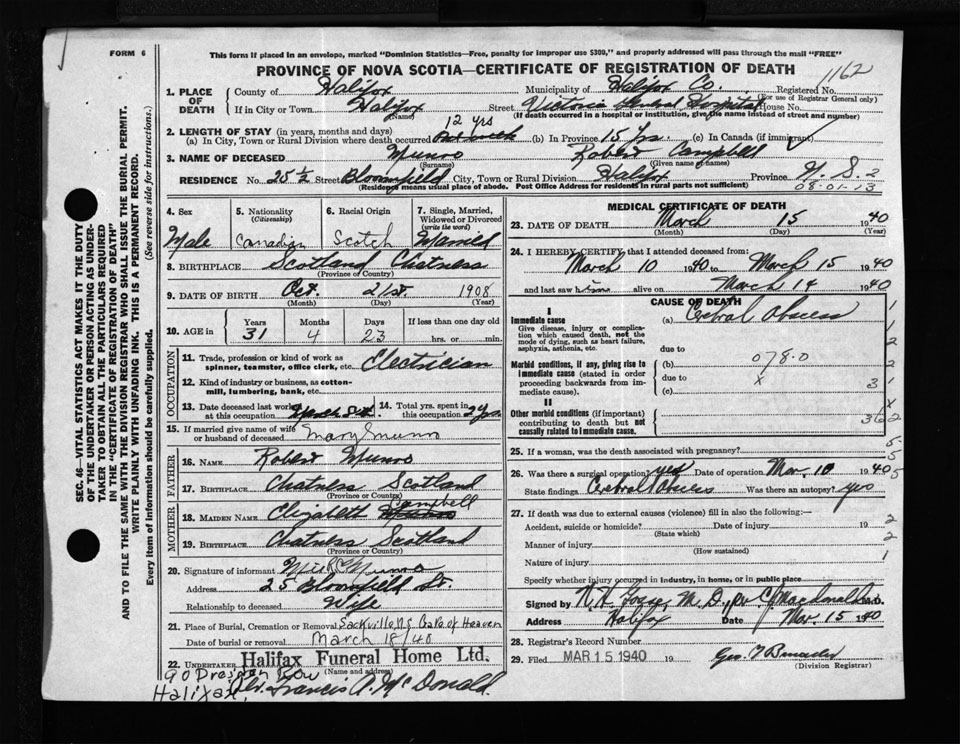 FORM 6
This form if placed in an envelope, marked "Dominion Statistics—Free, penalty for improper use $300," and properly addressed will pass through the mail "FREE"
PROVINCE OF NOVA SCOTIA—CERTIFICATE OF REGISTRATION OF DEATH
1162
1. PLACE OF DEATH
County of Halifax Municipality of Halifax Co. Registered No.
(For use of Registrar General only)
If in City or Town Halifax Street Victoria General Hospital House No.
(Name) (If death occurred in a hospital or institution, give the name instead of street and number)
2. LENGTH OF STAY (in years, months and days)
(a) In City, Town or Rural Division where death occurred 12 yrs (b) In Province 15 yrs. (c) In Canada (if immigrant)
3. NAME OF DECEASED Munro Robert Campbell
(Surname) (Given name or names)
RESIDENCE No. 25 ½ Street Bloomfield City, Town or Rural Division Halifax Province N. S. 2
(Residence means usual place of abode. Post Office Address for residents in rural parts not sufficient)
08-01-13
4. Sex
Male
5. Nationality (Citizenship)
Canadian
6. Racial Origin
Scotch
7. Single, Married, Widowed or Divorced (write the word)
Married
8. BIRTHPLACE Scotland Chatness
(Province or Country)
9. DATE OF BIRTH Oct. 21st. 1908
(Month) (Day) (Year)
10. AGE in
Years Months Days If less than one day old
31 4 23 hrs. or min.
OCCUPATION
11. Trade, profession or kind of work as spinner, teamster, office clerk, etc. Electrician
12. Kind of industry or business, as cotton-mill, lumbering, bank, etc.
13. Date deceased last worked at this occupation
14. Total yrs. spent in this occupation 2 yrs
15. If married give name of wife or husband of deceased Mary Munro
FATHER
16. Name Robert Munro
17. Birthplace Chatness Scotland
(Province or Country)
MOTHER
18. Maiden Name Elizabeth Campbell
19. Birthplace Chatness Scotland
(Province or Country)
20. Signature of informant Munro
Address 25 Bloomfield St.
Relationship to deceased Wife
21. Place of Burial, Cremation or Removal Sackville N.S. Gate of Heaven
Date of burial or removal March 18/40
22. UNDERTAKER Halifax Funeral Home Ltd.
(Name and address)
90 Dresden Row
Halifax. Francis A. McDonald.
MEDICAL CERTIFICATE OF DEATH
23. DATE OF DEATH March 15 1940
(Month) (Day) (Year)
24. I HEREBY CERTIFY that I attended deceased from:
March 10 1940 to March 15 1940
and last saw him alive on March 14 1940
CAUSE OF DEATH
I
Immediate cause
Give disease, injury or complication which caused death, not the mode of dying, such as heart failure, asphyxia, asthenia, etc.
(a) Cerebral Abscess
due to
Morbid conditions, if any, giving rise to immediate cause (stated in order proceeding backwards from immediate cause).
(b) 078.0
due to x
(c)
II
Other morbid conditions (if important) contributing to death but not causally related to immediate cause.
25. If a woman, was the death associated with pregnancy?
26. Was there a surgical operation? yes Date of operation Mar. 10 1940
State findings Cerebral Abscess Was there an autopsy? yes
27. If death was due to external causes (violence) fill in also the following:—
Accident, suicide or homicide? Date of injury 19
(State which)
Manner of injury
(How sustained)
Nature of injury
Specify whether injury occurred in industry, in home, or in public place
Signed by M. D., per C. J. MacDonald M.D.
Address Halifax Date Mar. 15 1940
28. Registrar's Record Number
29. Filed MAR 15 1940 19
(Division Registrar)
SEC. 46—VITAL STATISTICS ACT MAKES IT THE DUTY OF THE UNDERTAKER OR PERSON ACTING AS UNDERTAKER TO OBTAIN ALL THE PARTICULARS REQUIRED IN THE "CERTIFICATE OF REGISTRATION OF DEATH" AND TO FILE THE SAME WITH THE DIVISION REGISTRAR WHO SHALL ISSUE THE BURIAL PERMIT.
WRITE PLAINLY WITH UNFADING INK. THIS IS A PERMANENT RECORD.
Every item of information should be carefully supplied. (See reverse side for instructions.)